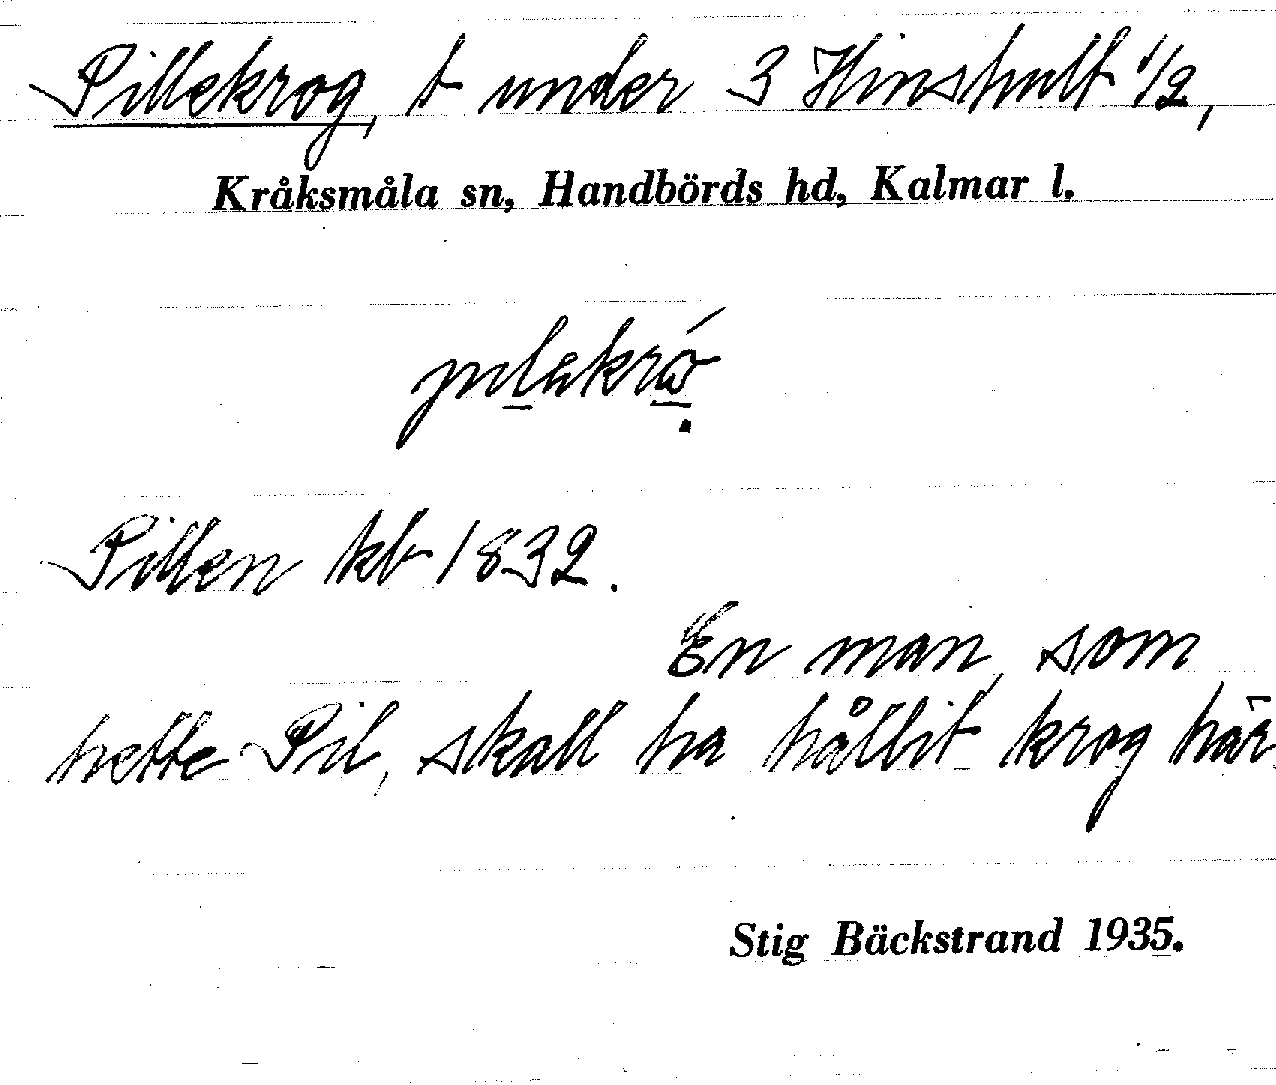 Pillekrog, t under 3 Hinshult 1/2,
Kråksmåla sn, Handbörds hd, Kalmar l.
Pillen kb 1832.
En man, som
hette Pil, skall ha hållit krog här
Stig Bäckstrand 1935.